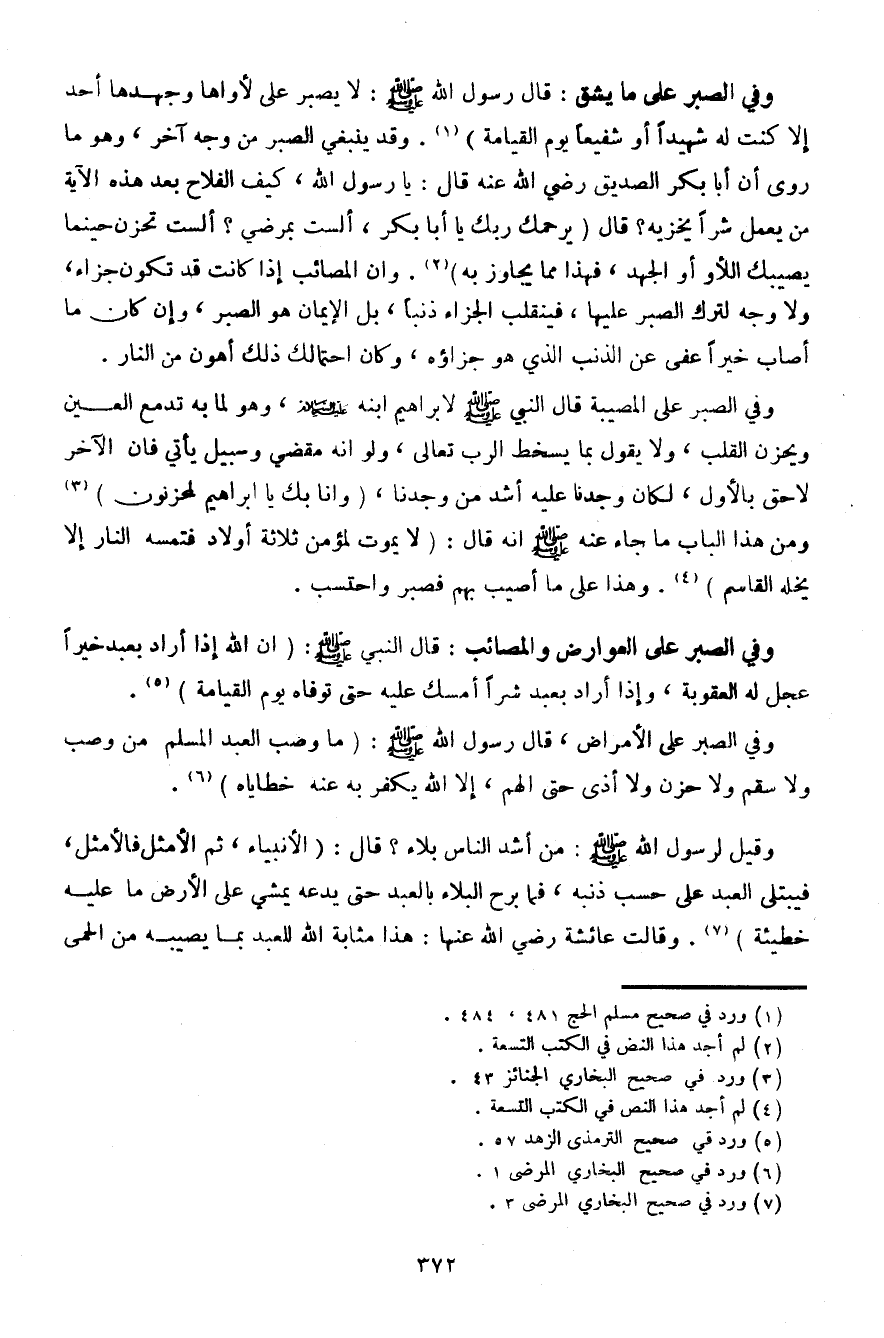 وفي الصبر على ما يشق : قال رسول الله ﷺ : لا يصبر على لأواها وجهدها أحد
إلا كنت له شهيداً أو شفيعاً يوم القيامة ) (١) . وقد ينبغي الصبر من وجه آخر ، وهو ما
روى أن أبا بكر الصديق رضي الله عنه قال : يا رسول الله ، كيف الفلاح بعد هذه الآية
من يعمل شراً يخزيه؟ قال ( يرحمك ربك يا أبا بكر ، ألست بمرضي ؟ ألست تحزن حينما
يصيبك اللأو أو الجهد ، فهذا مما يجاوز به)(٢) . وان المصائب إذا كانت قد تكون جزاء،
ولا وجه لترك الصبر عليها ، فينقلب الجزاء ذنباً ، بل الإيمان هو الصبر ، وإن كان ما
أصاب خيراً عفى عن الذنب الذي هو جزاؤه ، وكان احتمالك ذلك أهون من النار .
وفي الصبر على المصيبة قال النبي ﷺ لابراهيم ابنه عليه السلام ، وهو لما به تدمع العين
ويحزن القلب ، ولا يقول بما يسخط الرب تعالى ، ولو انه مقضي وسبيل يأتي فان الآخر
لاحق بالأول ، لكان وجدنا عليه أشد من وجدنا ، ( وانا بك يا ابراهيم لمحزنون ) (٣)
ومن هذا الباب ما جاء عنه ﷺ انه قال : ( لا يموت لمؤمن ثلاثة أولاد فتمسه النار إلا
يخله القاسم ) (٤) . وهذا على ما أصيب بهم فصبر واحتسب .
وفي الصبر على العوارض والمصائب : قال النبي ﷺ : ( ان الله إذا أراد بعبد خيراً
عجل له العقوبة ، وإذا أراد بعبد شراً أمسك عليه حتى توفاه يوم القيامة ) (٥) .
وفي الصبر على الأمراض ، قال رسول الله ﷺ : ( ما وضب العبد المسلم من وصب
ولا سقم ولا حزن ولا أذى حتى الهم ، إلا الله يكفر به عنه خطاياه ) (٦) .
وقيل لرسول الله ﷺ : من أشد الناس بلاء ؟ قال : ( الأنبياء ، ثم الأمثل فالأمثل،
فيبتلى العبد على حسب ذنبه ، فما برح البلاء بالعبد حتى يدعه يمشي على الأرض ما عليه
خطيئة ) (٧) . وقالت عائشة رضي الله عنها : هذا مثابة الله للعبد بما يصيبه من الحمى
(١) ورد في صحيح مسلم الحج ٤٨١ ، ٤٨٤ .
(٢) لم أجد هذا النض في الكتب التسعة .
(٣) ورد في صحيح البخاري الجنائز ٤٣ .
(٤) لم أجد هذا النص في الكتب التسعة .
(٥) ورد قي صحيح الترمذى الزهد ٥٧ .
(٦) ورد في صحيح البخاري المرضى ١ .
(٧) ورد في صحيح البخاري المرضى ٣ .
٣٧٢